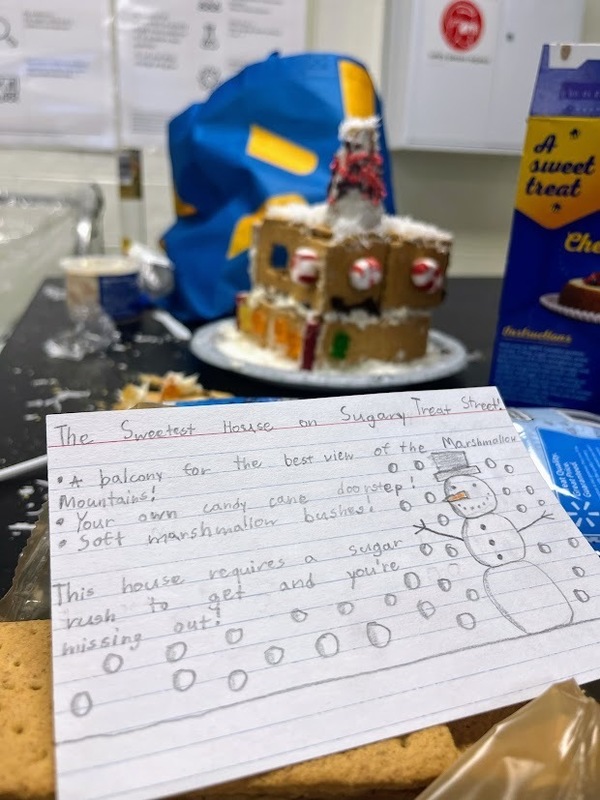 A
sweet
treat
Che
Instructions
The Sweetest House on Sugary Treat Street!
• A balcony for the best view of the Marshmallow
Mountains!
• Your own candy cane doorstep!
• Soft marshmallow bushes!
This house requires a sugar
rush to get and you're
missing out!